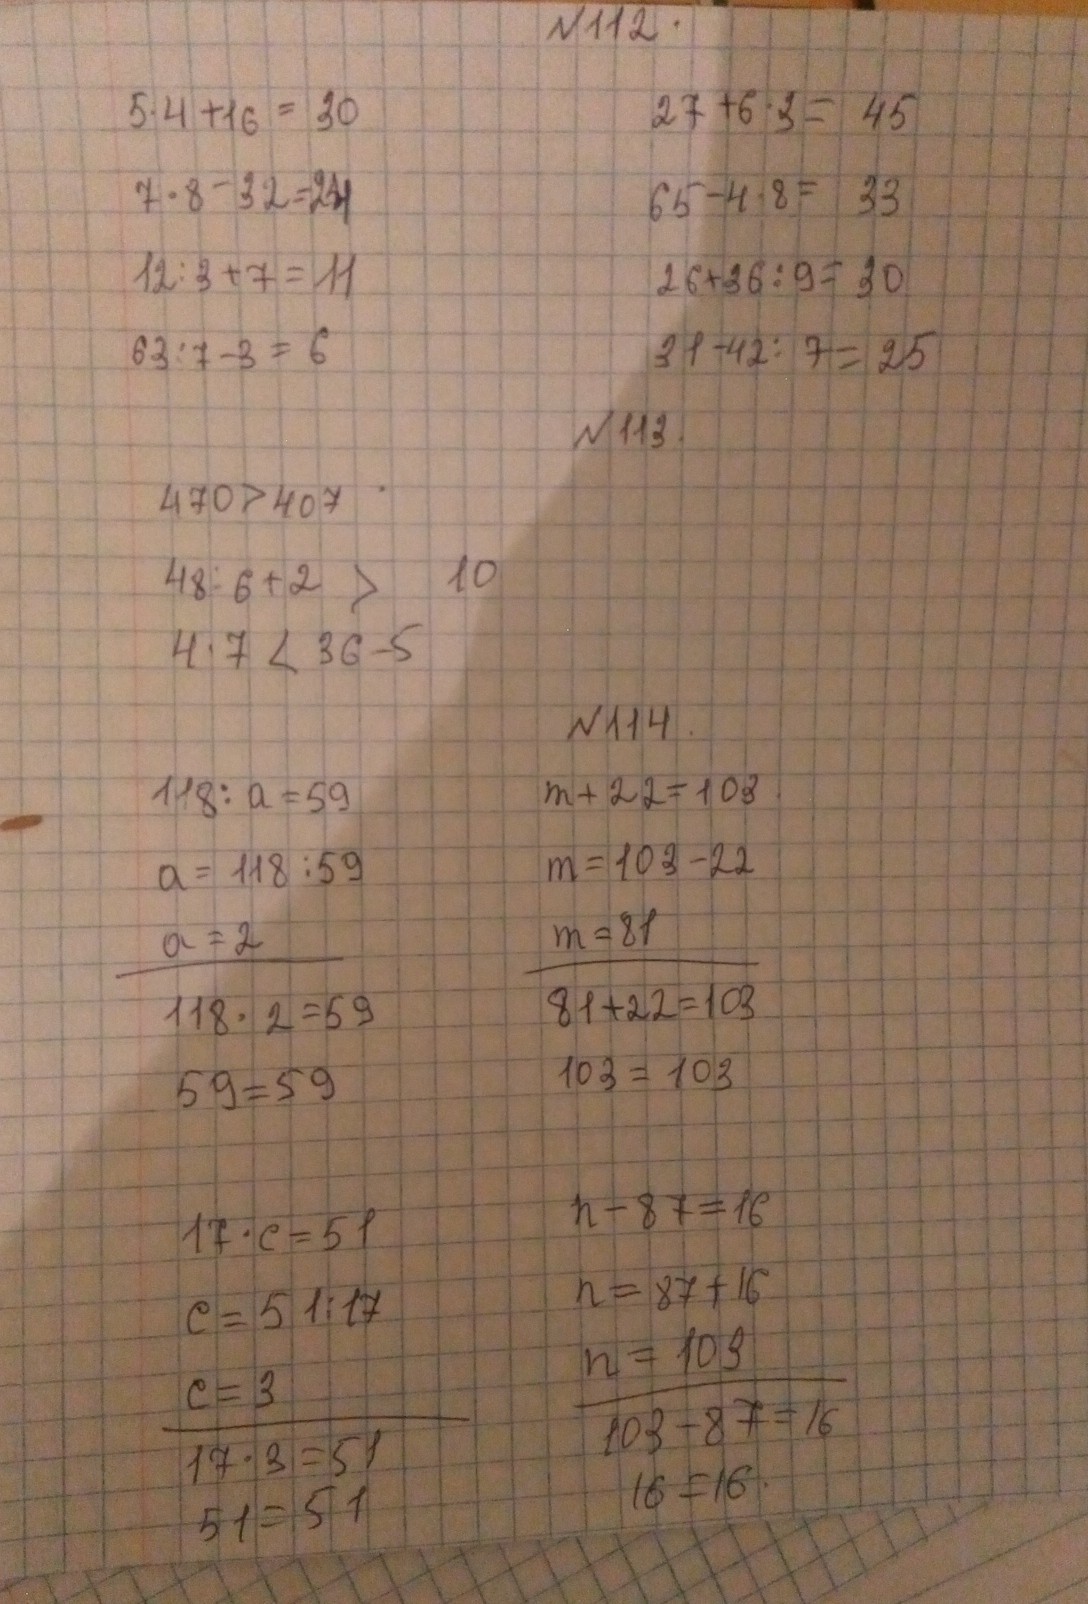 №112.
5·4+16 = 30
27+6·3= 45
7·8-32=24
65-4·8= 33
12:3+7=11
26+36:9= 30
63:7-3= 6
31-42: 7= 25
№113.
470>407
48:6+2 > 10
4·7 < 36-5
№114.
118: a=59
m+22=103.
a= 118:59
m=103-22
a=2
m=81
118· 2=59
81+22=103
59=59
103=103
17·c=51
n-87=16
c=51:17
n=87+16
c=3
n=103
17·3=51
103-87=16
51=51
16=16.